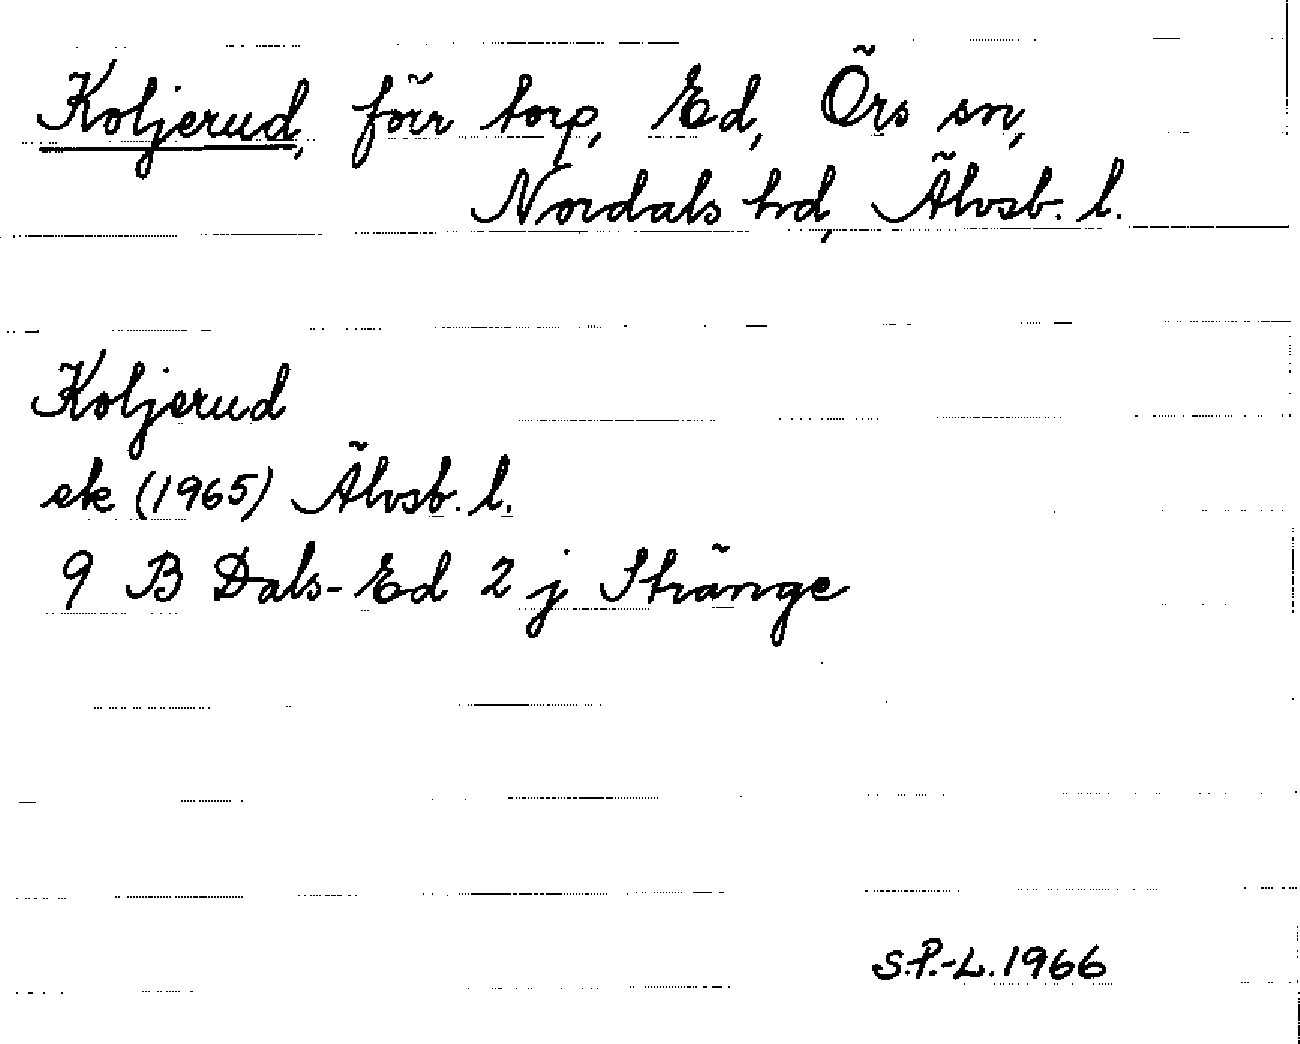 Koljerud, förr torp, Ed, Örs sn,
Nordals hd, Älvsb. l.
Koljerud
ek (1965) Älvsb. l.
9 B Dals-Ed 2 j Stränge
S.P.-L. 1966